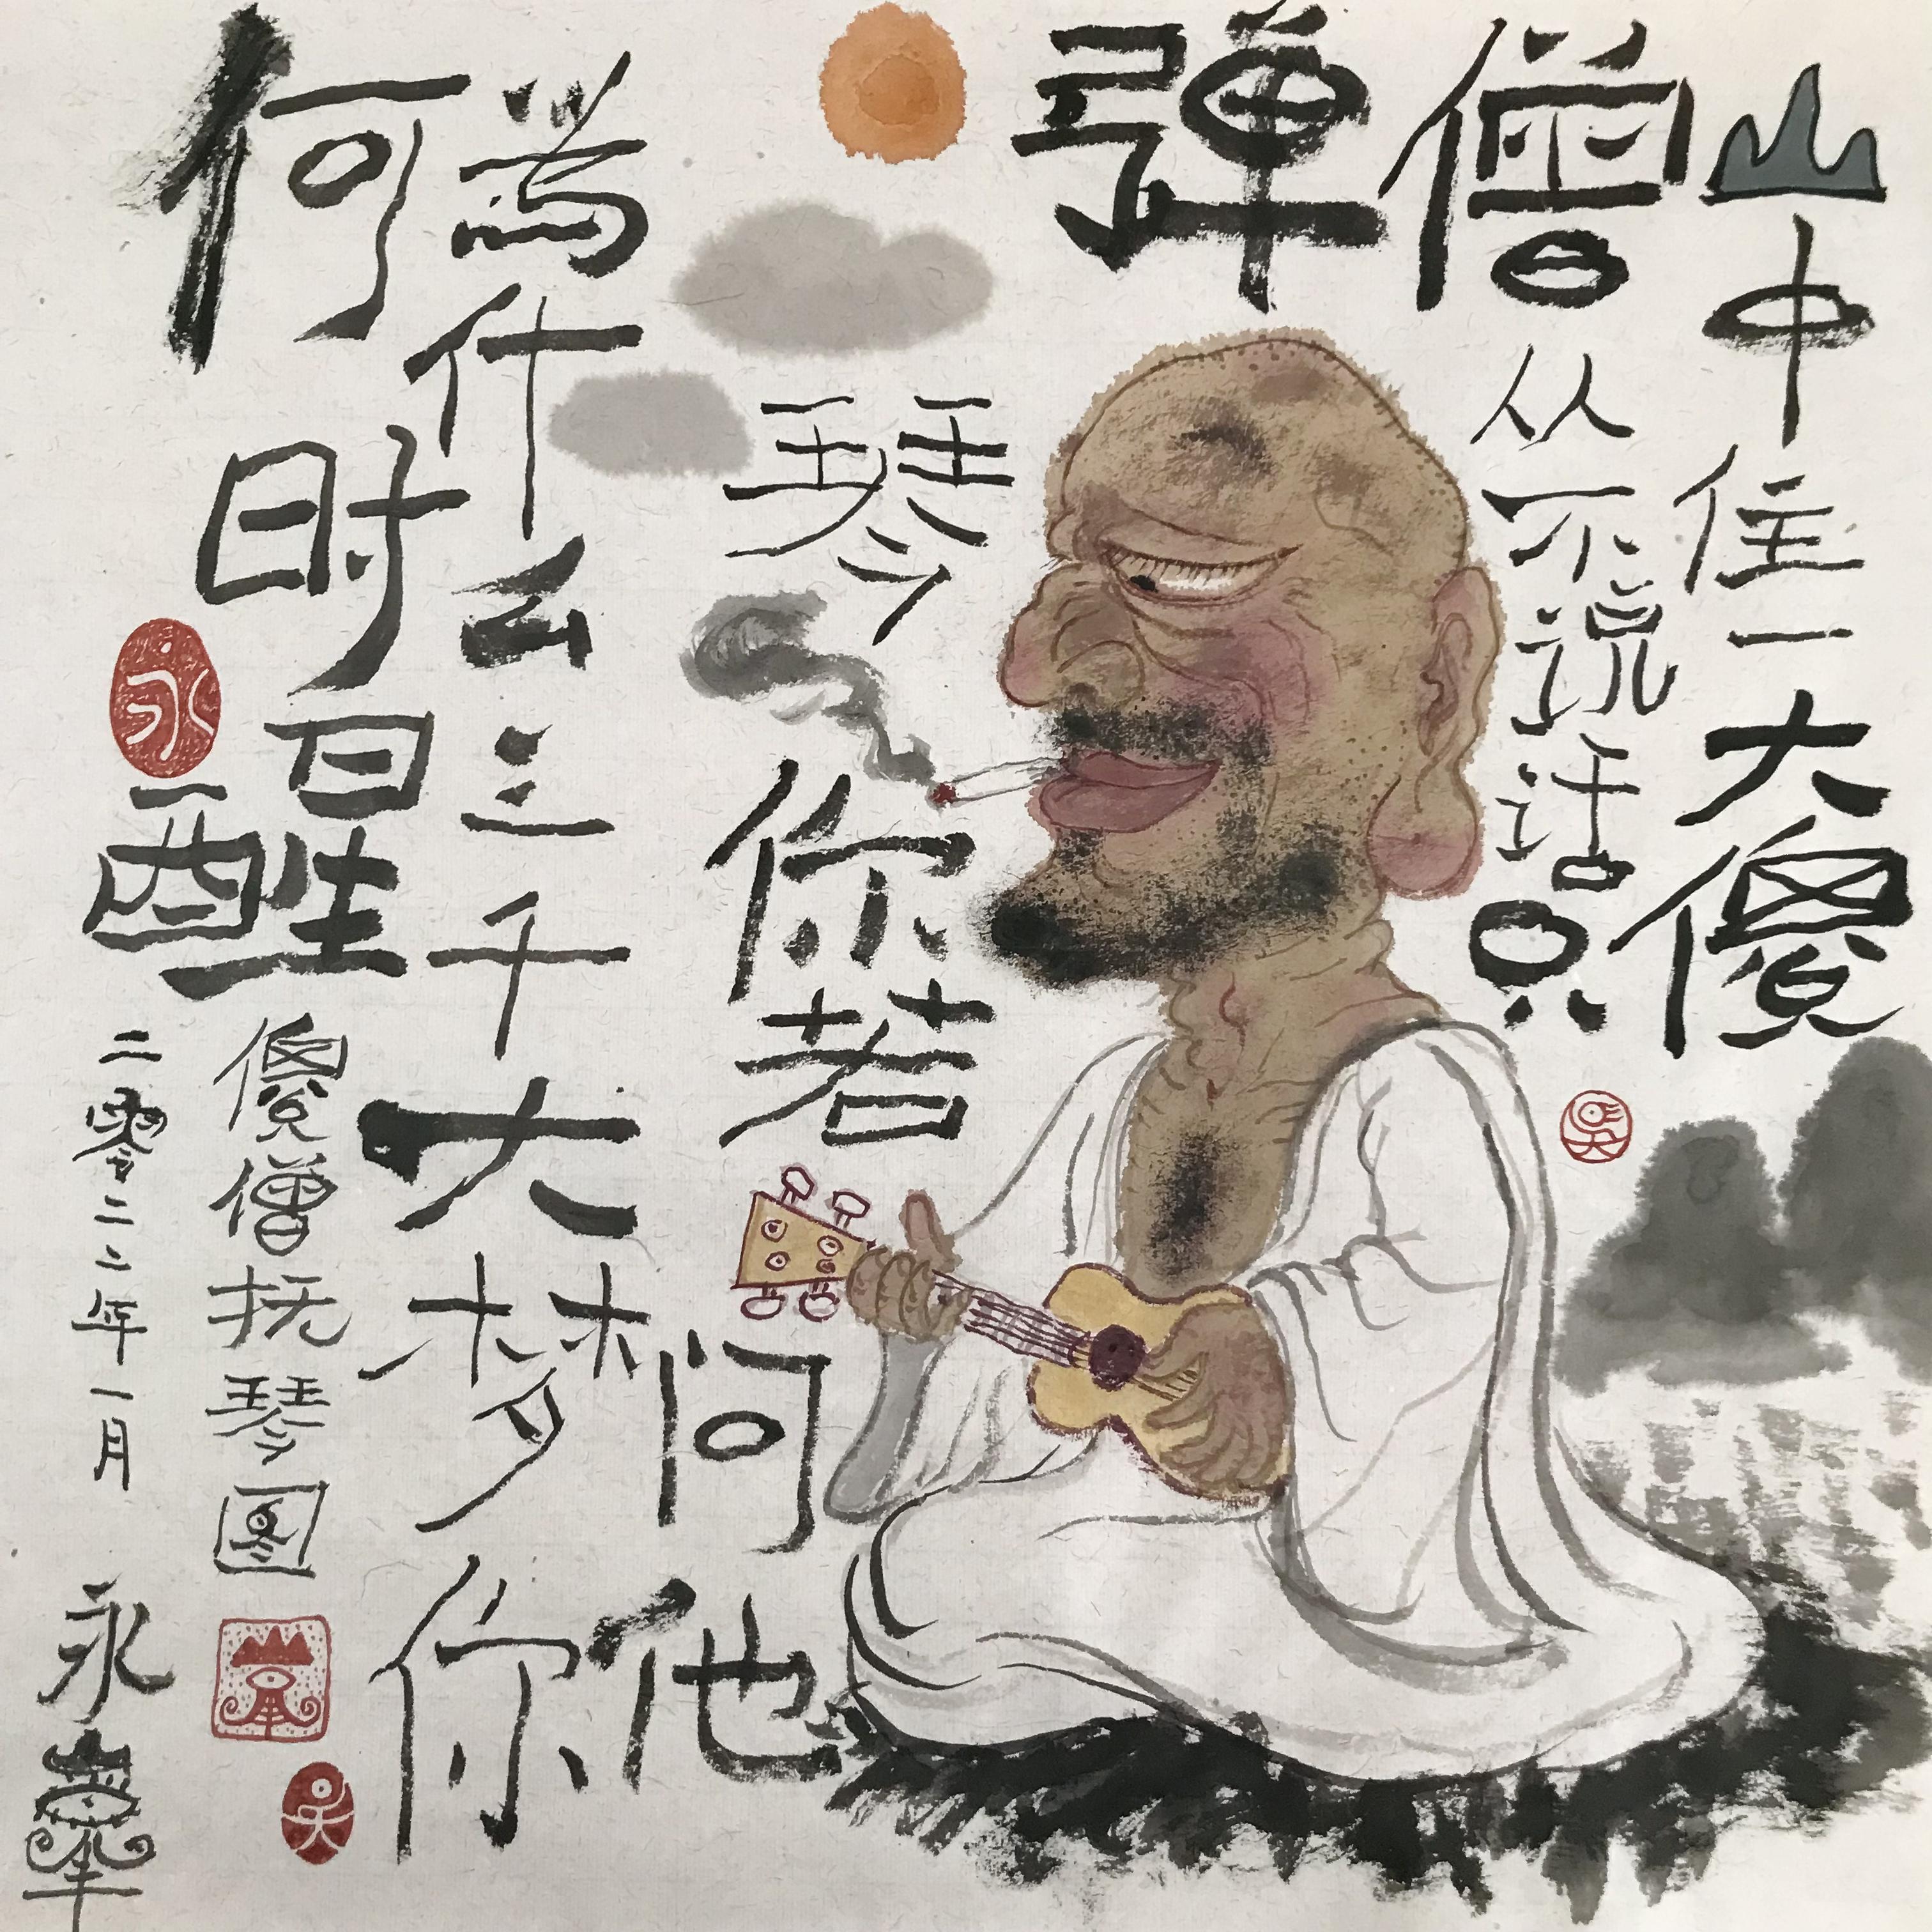 山中住一大傻
僧从不说话只
弹
琴你若
问他
為什么三千大梦你
何时醒
傻僧抚琴图
二零二二年一月
永
永
吴
吴